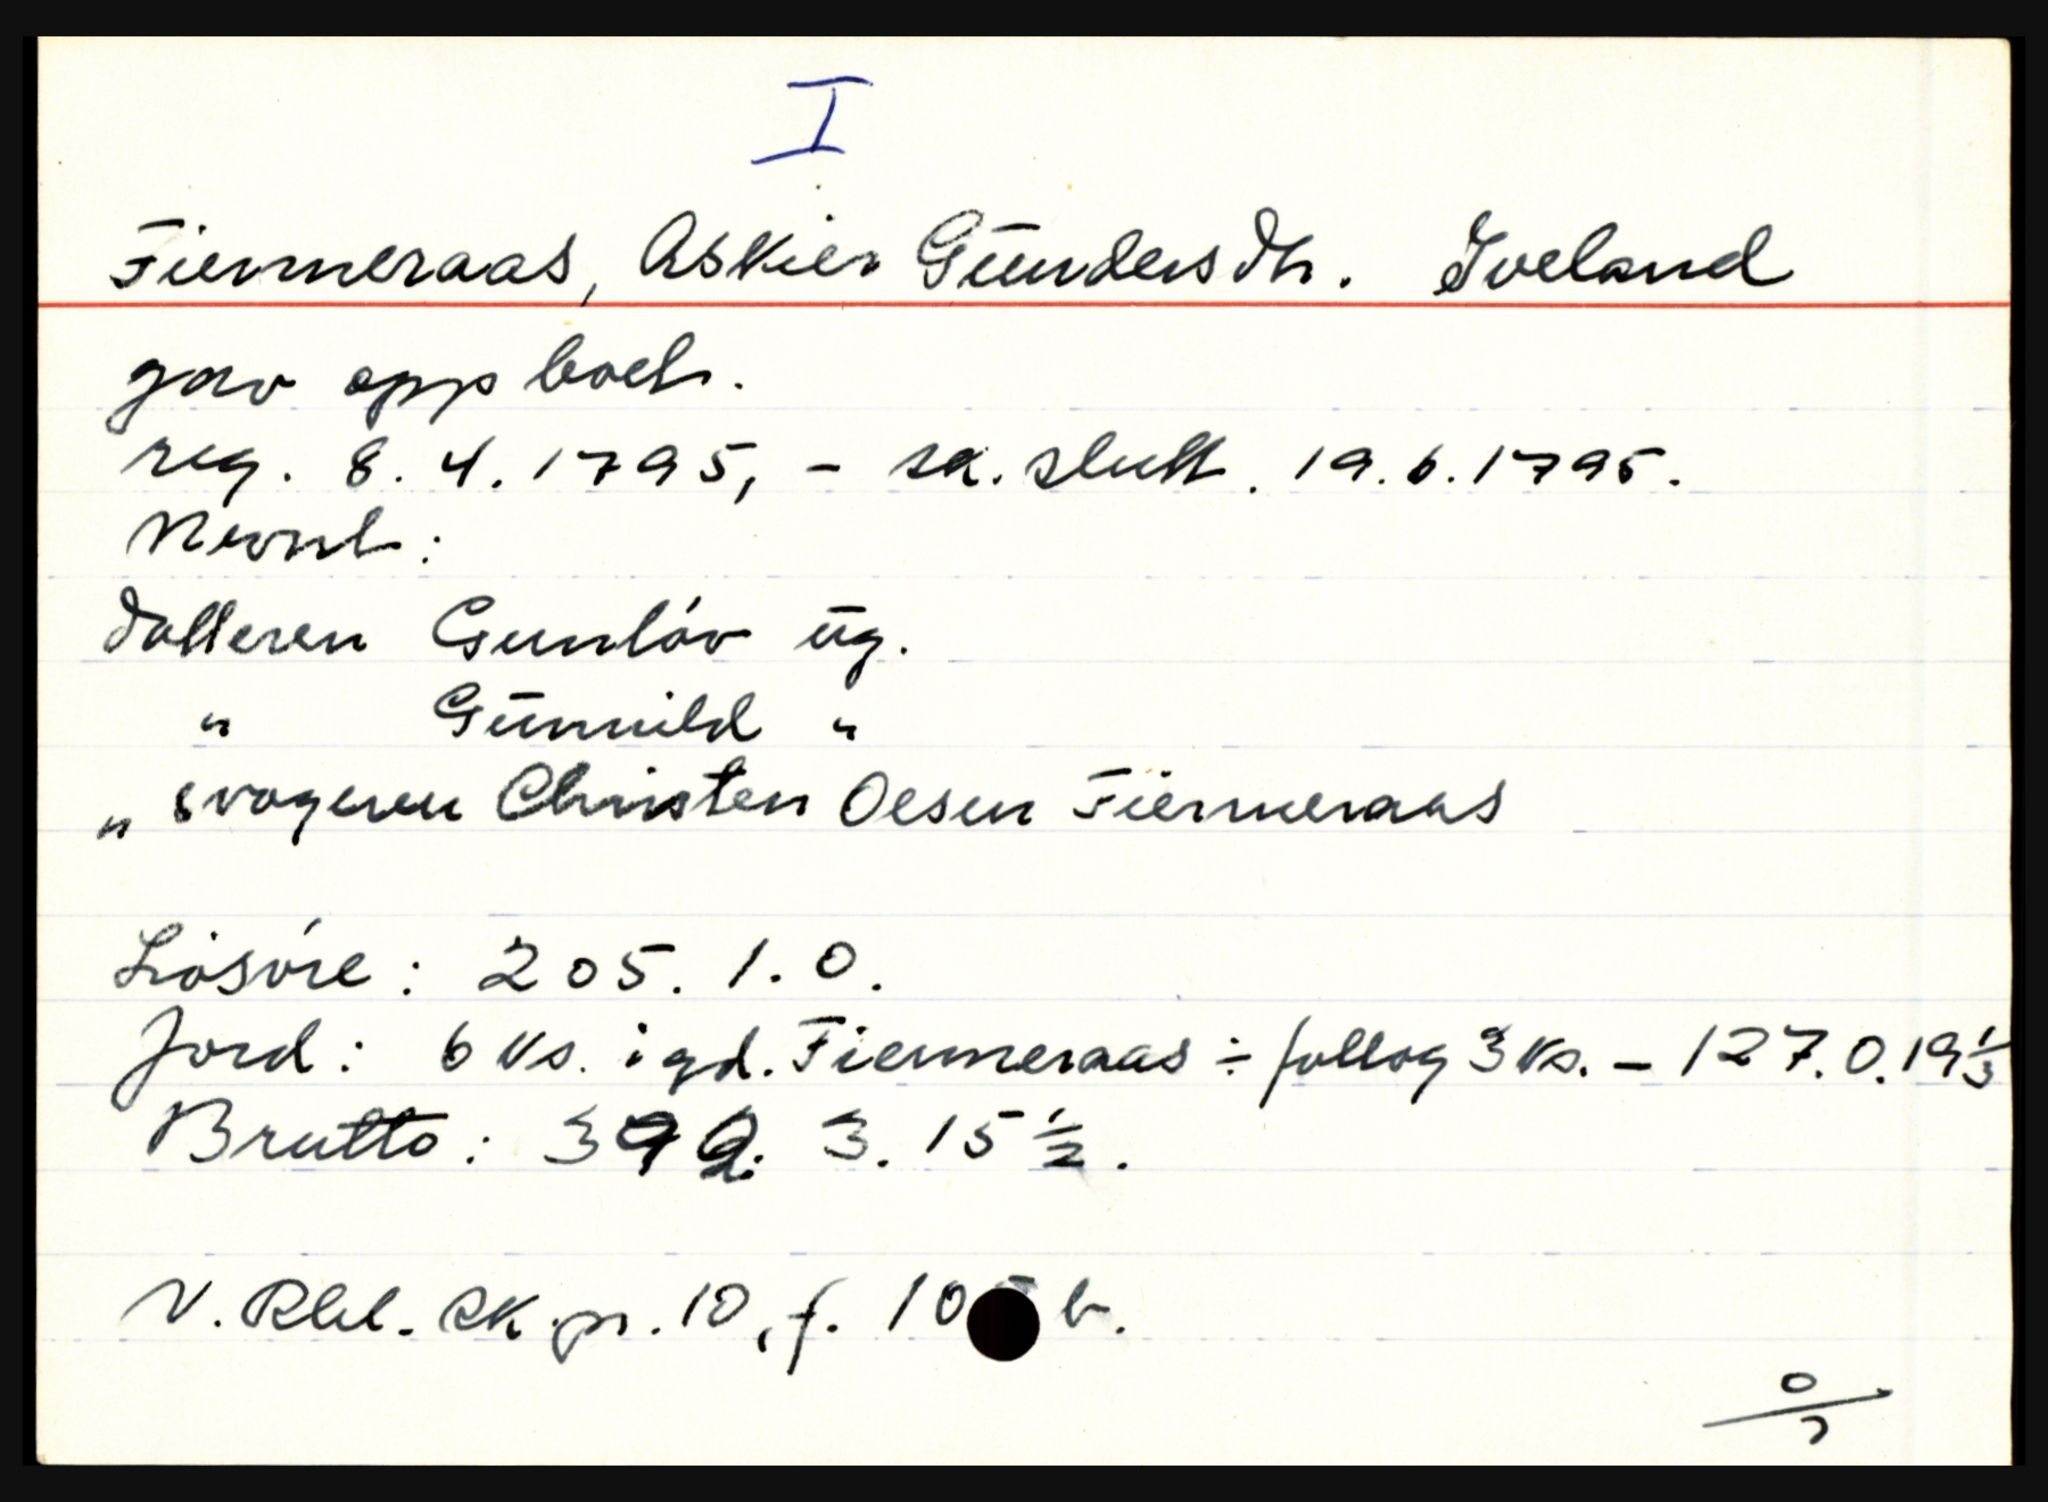 I
Fiermeraas, Askier Gūndersdtr. Iveland
gav opp boet.
reg. 8.4.1795, - sk. slutt. 19.6.1795.
Nevnt:
datteren Gunløv ūg.
" Gūnnild "
" svogeren Christen Oesen Fiermeraas
Løsøre: 205. 1. 0.
Jord: 6 ks. i gd. Fiermeraas ÷ follog 3 ks. - 127. 0. 19 1/3
Brutto: 392. 3. 15 1/2.
N. Rbl. sk.pr. 10, f. 105 b.